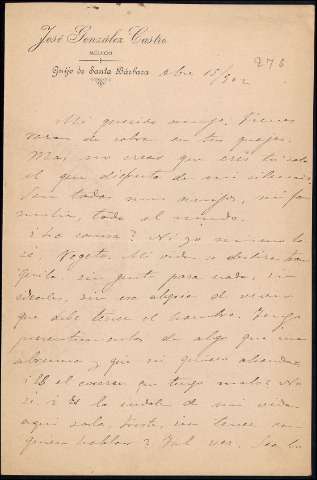 José González Castro
MÉDICO
Guijo de Santa Bárbara
Abre 15/902
273
Mi querido amigo: Tienes
razon de sobra en tus quejas.
Mas no creas que eres tu solo
el que disfruta de mi silencio.
Son todos mis amigos, mi fa-
milia, todo el mundo.
¿La causa? Ni yo mismo la
sé. Vegeto. Mi vida se desliza tran
quila, sin gusto para nada, sin
ideales, sin esa alegria de vivir
que debe tener el hombre. Tengo
presentimientos de algo que me
abruma y que no quiero ahondar.
¿Es el corazon que tengo malo? No
sé. ¿Es la índole de mi vida
aquí sola, triste, sin tener con
quien hablar? Tal vez. Sea lo